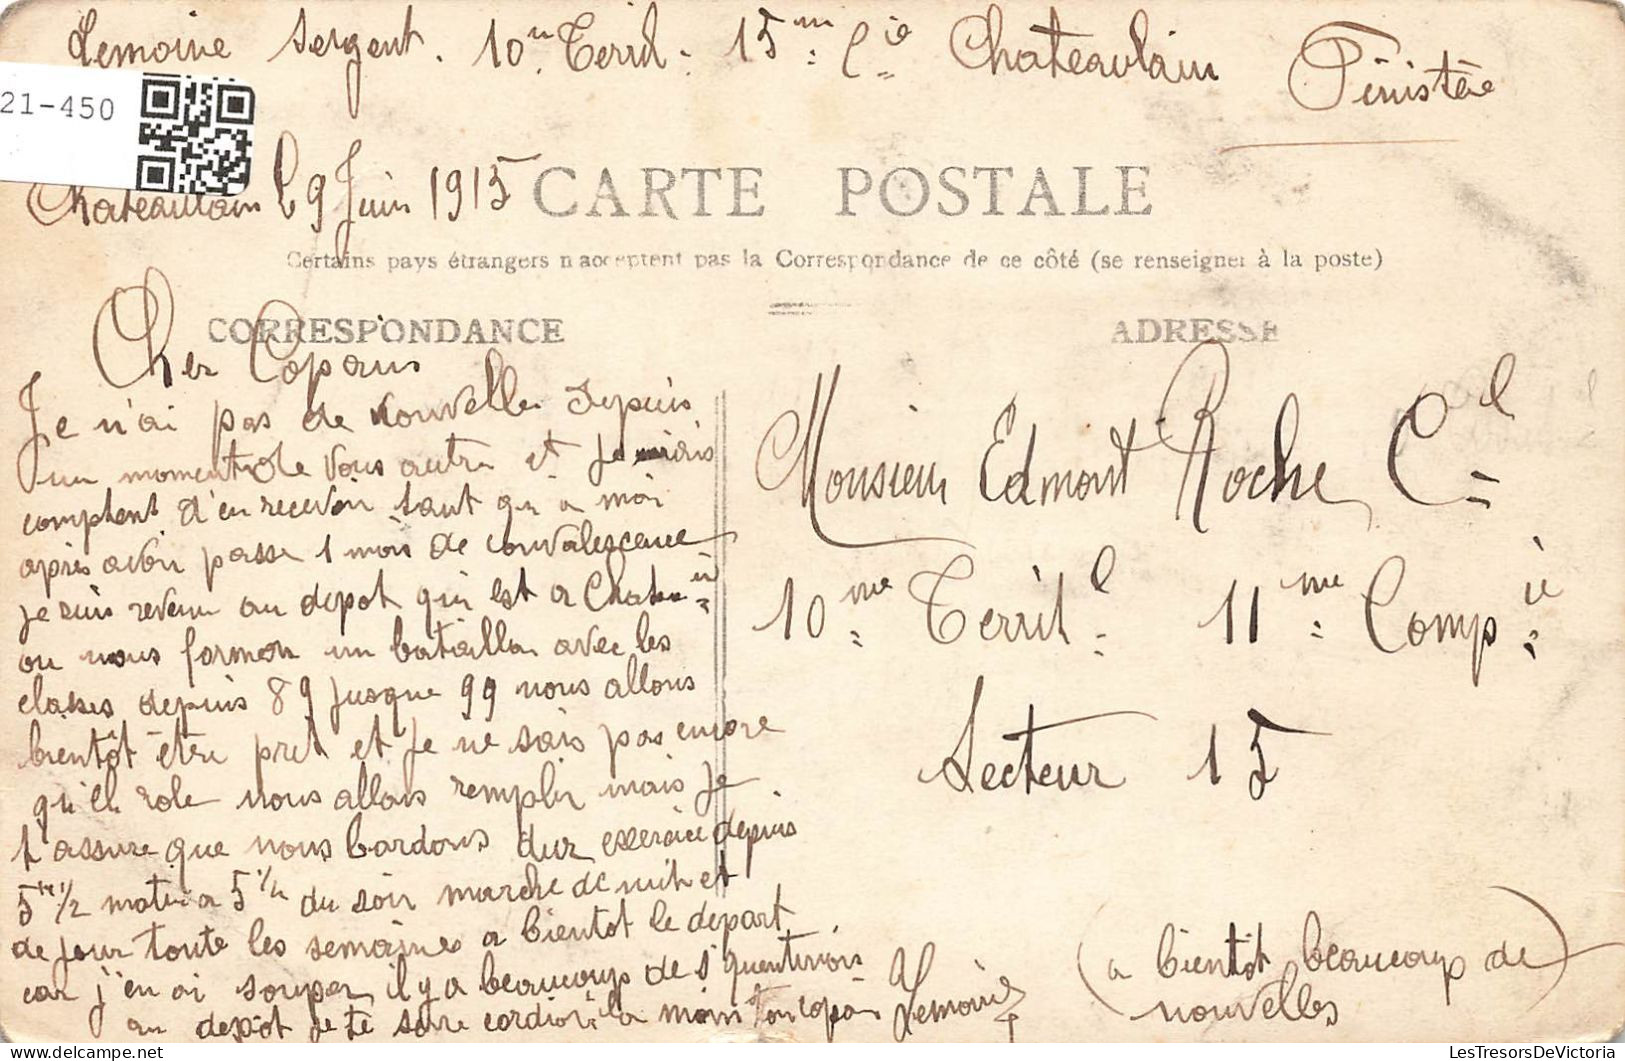 Lemoine Sergent. 10e Territ. 15me Cie Chateaulain Finistère
21-450
Chateaulain le 9 Juin 1915
CARTE POSTALE
Certains pays étrangers n'acceptent pas la Correspondance de ce côté (se renseigner à la poste)
CORRESPONDANCE
ADRESSE
Cher Copain
Je n'ai pas de nouvelles depuis
un moment de vous autre et je
comptent d'en recevoir
après avoir passe 1 mois de convalescence
je suis revenu au depot qui est a Chateauin
ou nous formon un bataillon avec les
classes depuis 89 jusque 99 nous allons
bientôt être pret et je ne sais pas encore
qu'ell role nous allons remplir mais je
t'assure que nous bardons dur exercice depuis
5h 1/2 matin a 5 1/2 du soir marche de nuit et
de jour toute les semaines a bientot le depart
car j'en ai souper il y a beaucoup de
au depot je te serre cordial la main ton copain Lemoine
Monsieur Edmont Roche Cal
10me Territl 11me Compie
Secteur 15
(a bientôt beaucoup de
nouvelles)
LesTresorsDeVictoria.com